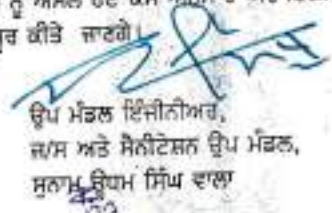 ਨੂੰ ਅਸਲ
ਕੀਤੇ ਜਾਣਗੇ।
ਉਪ ਮੰਡਲ ਇੰਜੀਨੀਅਰ,
ਜ/ਸ ਅਤੇ ਸੈਨੀਟੇਸ਼ਨ ਉਪ ਮੰਡਲ,
ਸੁਨਾਮ ਊਧਮ ਸਿੰਘ ਵਾਲਾ